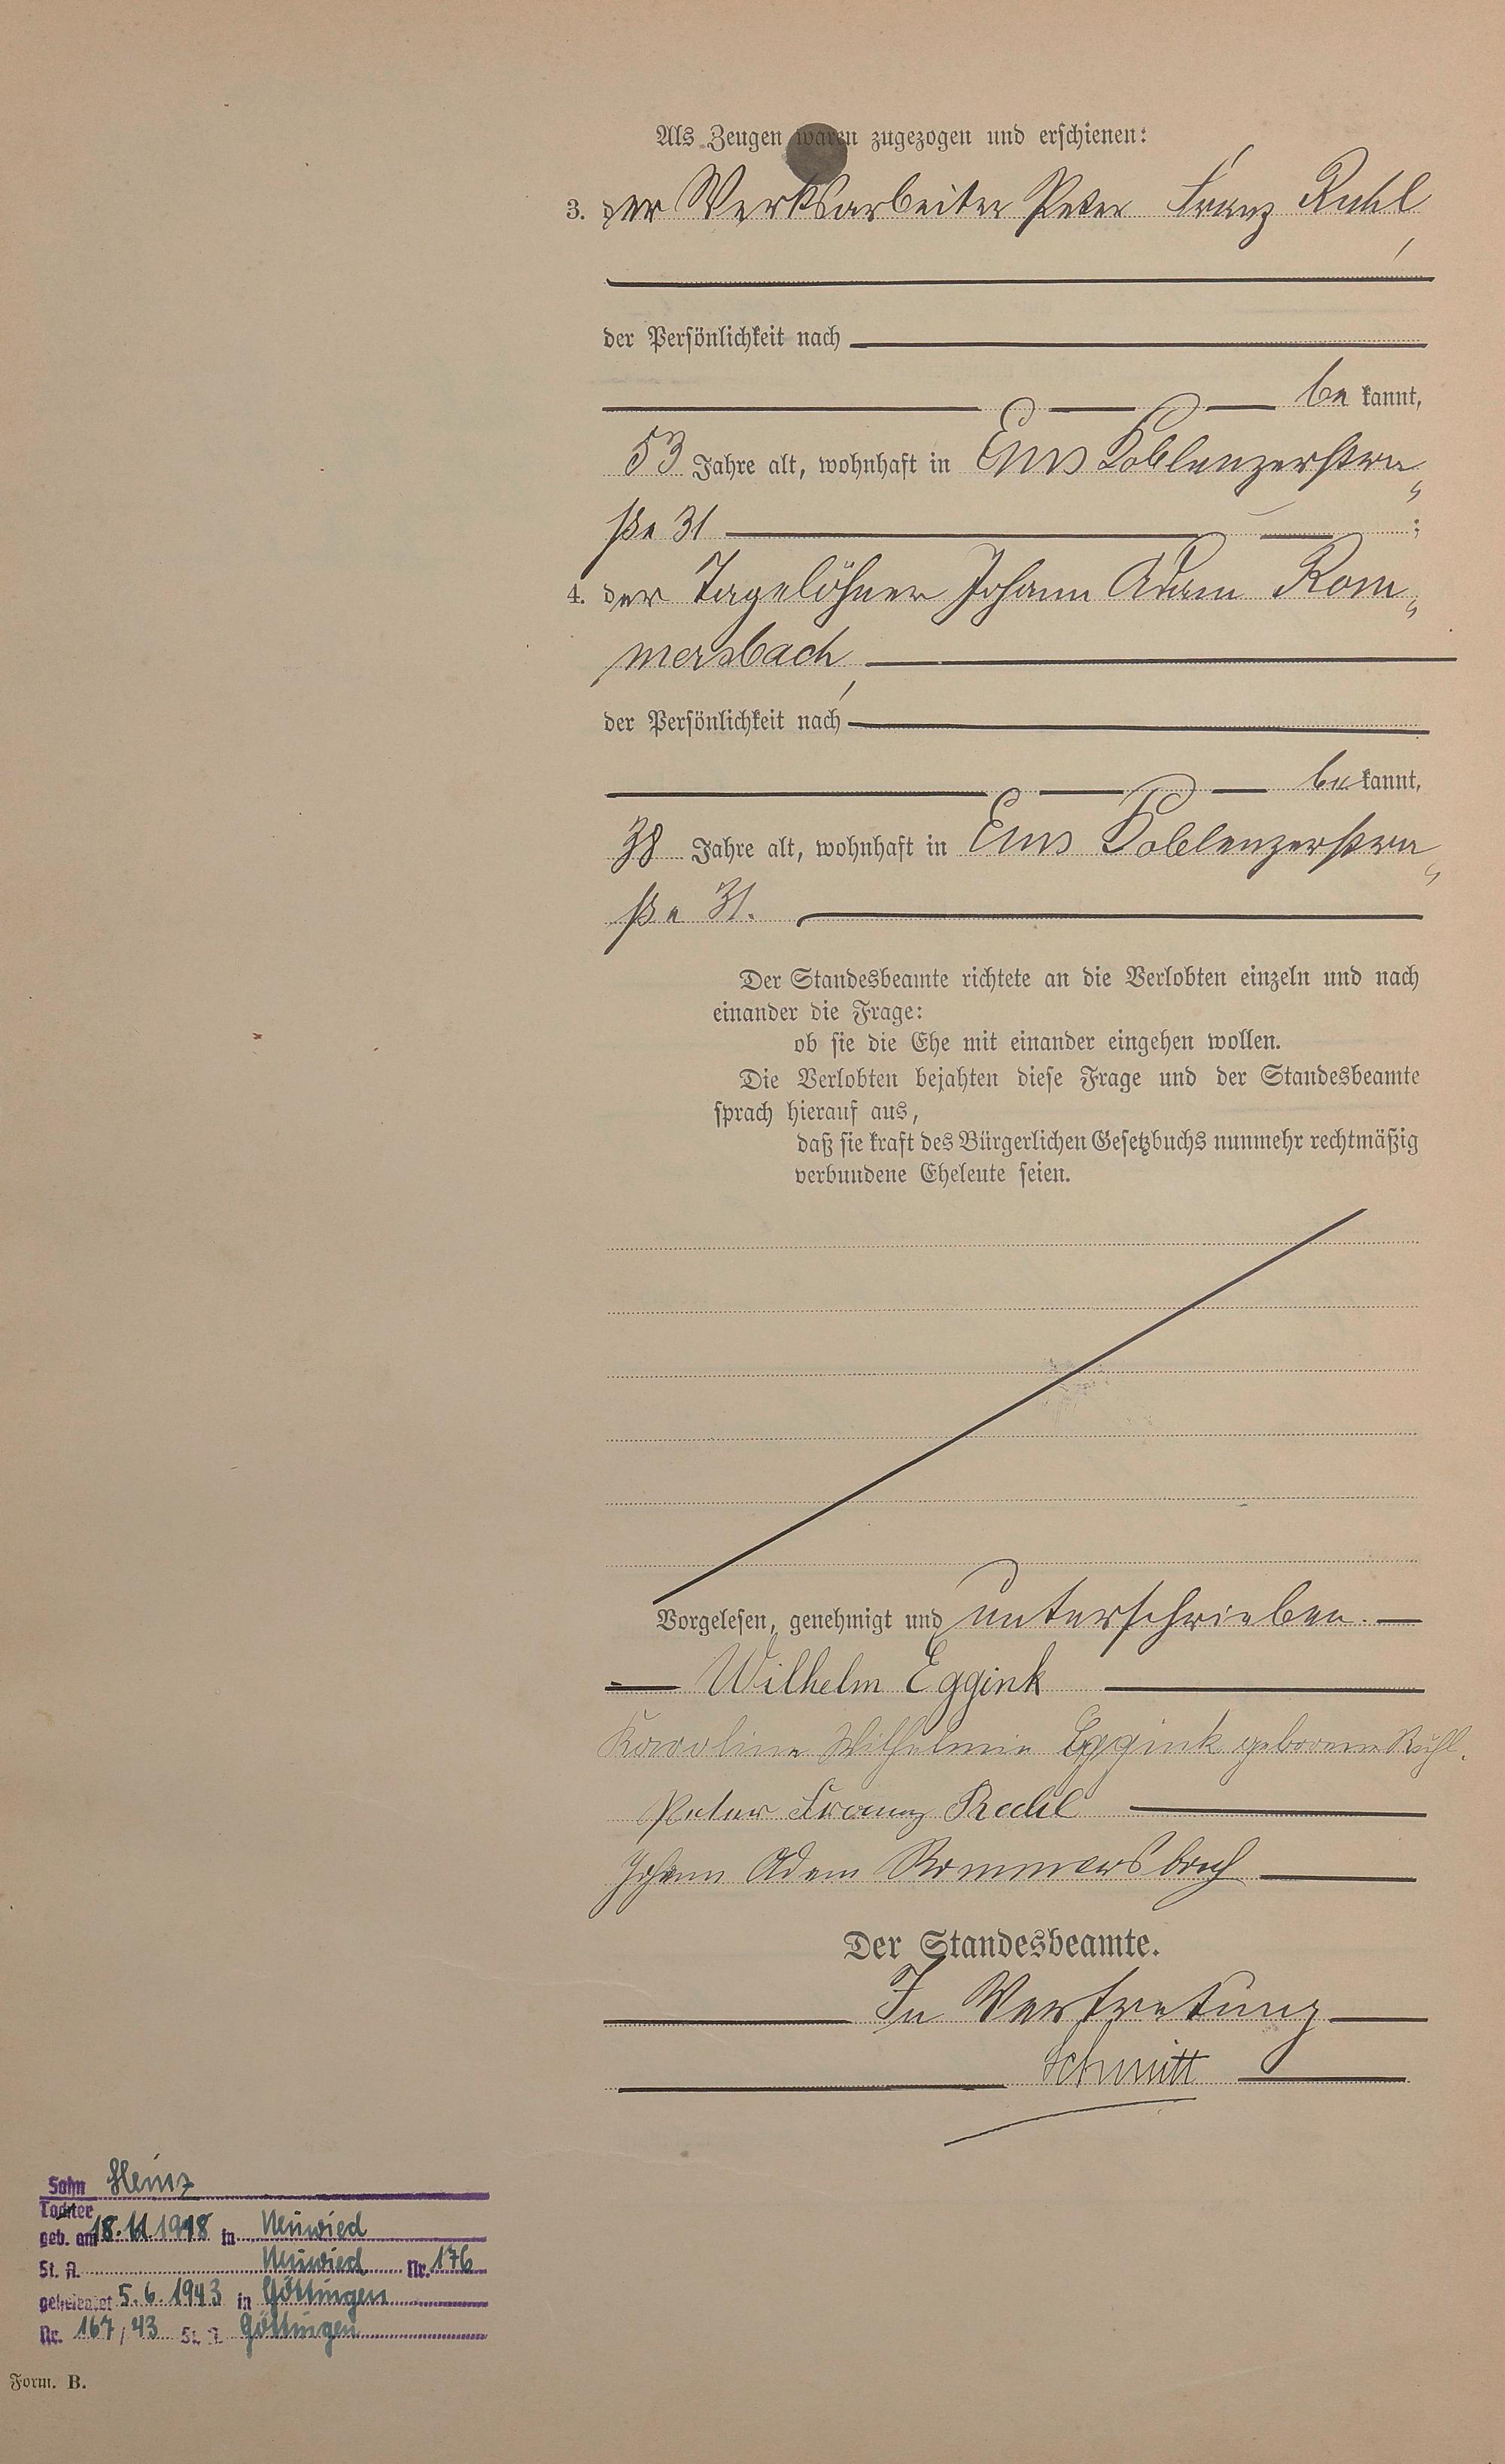 Als Zeugen waren zugezogen und erschienen:
3. der Werksarbeiter Peter Franz Ruhl,
der Persönlichkeit nach
be kannt,
53 Jahre alt, wohnhaft in Ems Koblenzerstra„
ße 31 ;
4. der Tagelöhner Johann Adam Rom„
mersbach,
der Persönlichkeit nach
be kannt,
38 Jahre alt, wohnhaft in Ems Koblenzerstra„
ße 31.
Der Standesbeamte richtete an die Verlobten einzeln und nach
einander die Frage:
ob sie die Ehe mit einander eingehen wollen.
Die Verlobten bejahten diese Frage und der Standesbeamte
sprach hierauf aus,
daß sie kraft des Bürgerlichen Gesetzbuchs nunmehr rechtmäßig
verbundene Eheleute seien.
Vorgelesen, genehmigt und unterschrieben.
Wilhelm Eggink
Karoline Wilhelmine Eggink geborene Ruhl.
Peter Franz Ruhl
Johann Adam Rommersbach
Der Standesbeamte.
In Vertretung
Schmitt
Sohn Heinz
Tochter
geb. am 18.11.1918 in Neuwied
St. A. Neuwied Nr. 176
geheiratet 5.6.1943 in Göttingen
Nr. 167/43 St. A. Göttingen
Form. B.